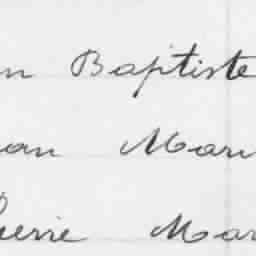 n Baptiste
an Mari
ierre Mar